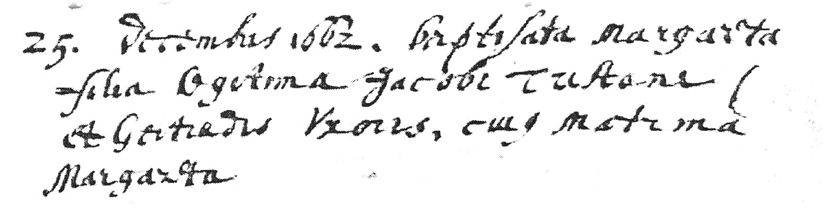 25. decembris 1662. baptisata Margarta
filia Legitima Jacobi Tustoni (
et Gertrudis Uxoris, cuiq Matrina
Margarta